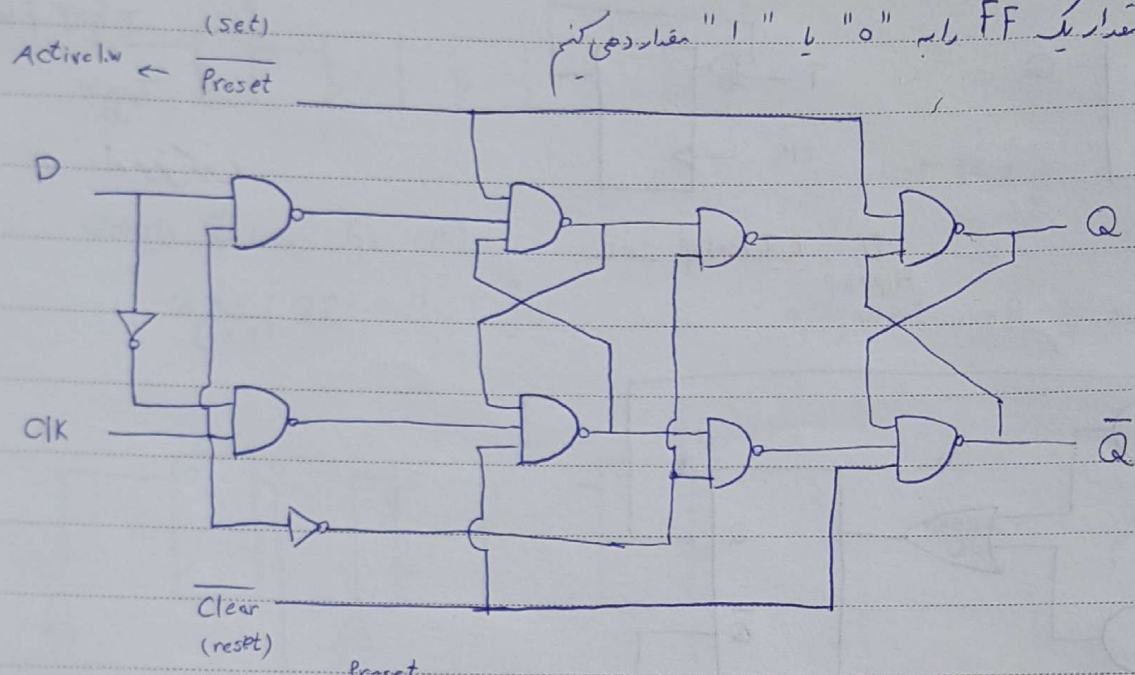 مقدار یک FF را به "0" یا "1" مقداردهی کنیم
(set)
Active low ← Preset
D
Q
Clk
Q
Clear
(reset)
Preset